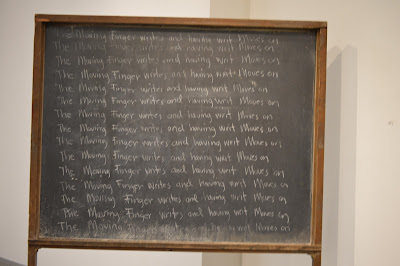 The Moving Finger writes and having writ Moves on
The Moving Finger writes and having writ Moves on
The Moving Finger writes and having writ Moves on
The Moving Finger writes and having writ Moves on
The Moving Finger writes and having writ Moves on
The Moving Finger writes and having writ Moves on
The Moving Finger writes and having writ Moves on
The Moving Finger writes and having writ Moves on
The Moving Finger writes and having writ Moves on
The Moving Finger writes and having writ Moves on
The Moving Finger writes and having writ Moves on
The Moving Finger writes and having writ Moves on
The Moving Finger writes and having writ Moves on
The Moving Finger writes and having writ Moves on
The Moving Finger writes and having writ Moves on